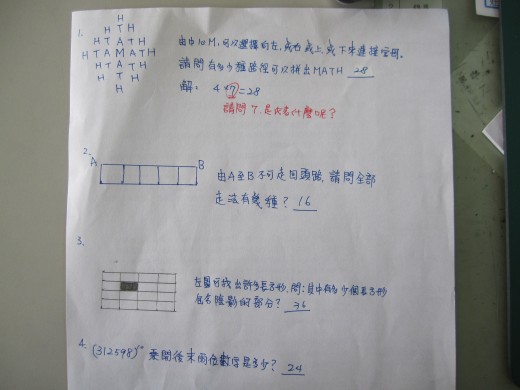 H
1. H T H
H T A T H
H T A M A T H
H T A T H
H T H
H
由中間M,可以選擇向左,或右或上或下來連接字母。
請問有多少種路徑可以拼出MATH 28
解: 4×7=28
請問7是代表什麼呢?
2.
A B
由A至B不可走回頭路,請問全部
走法有幾種? 16
3.
左圖可找出許多長方形,問:其中有多少個長方形
包含陰影的部分? 36
4. (312598) 乘開後末兩位數字是多少? 24